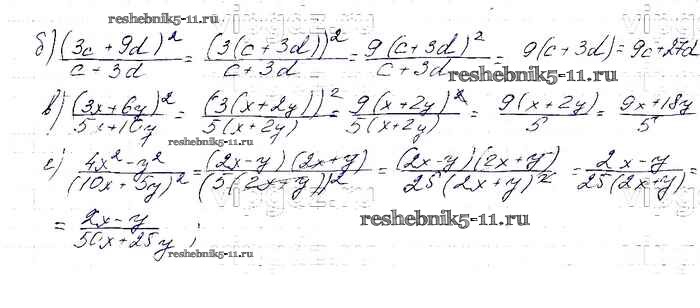 reshebnik5-11.ru
б) (3c + 9d)²/(c + 3d) = (3(c + 3d))²/(c + 3d) = 9(c + 3d)²/(c + 3d) = 9(c + 3d) = 9c + 27d
reshebnik5-11.ru
в) (3x + 6y)²/(5x + 10y) = (3(x + 2y))²/(5(x + 2y)) = 9(x + 2y)²/(5(x + 2y)) = 9(x + 2y)/5 = (9x + 18y)/5
е) (4x² - y²)/(10x + 5y)² = (2x - y)(2x + y)/(5(2x + y))² = (2x - y)(2x + y)/(25(2x + y)²) = (2x - y)/(25(2x + y)) =
= (2x - y)/(50x + 25y);
reshebnik5-11.ru
reshebnik5-11.ru